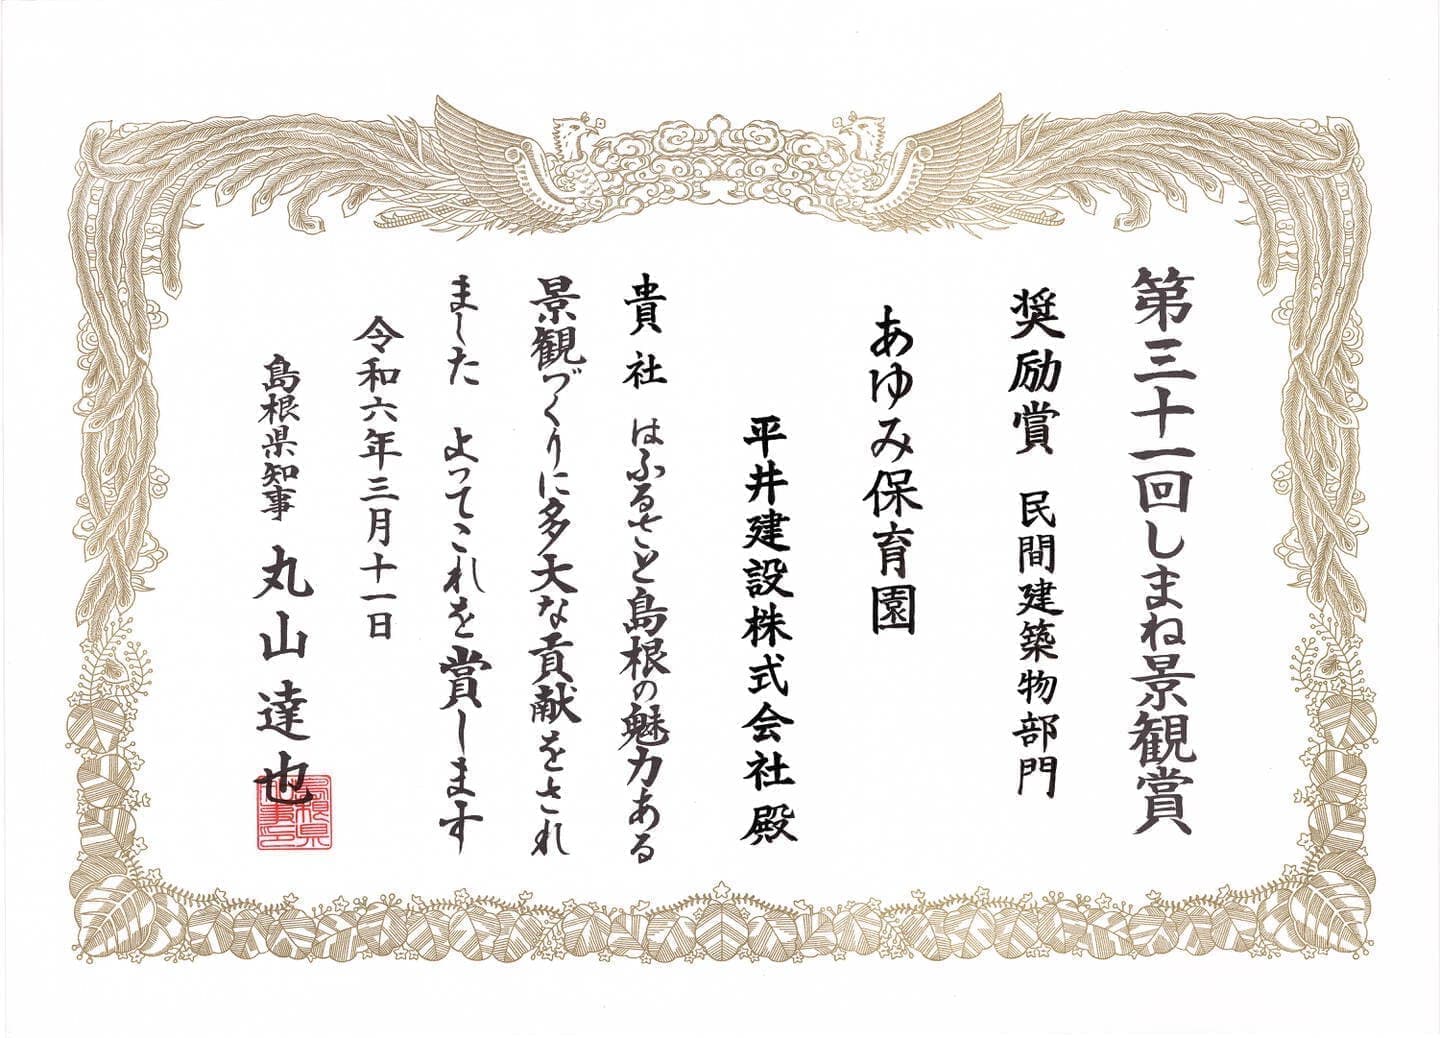 第三十一回しまね景観賞
奨励賞 民間建築物部門
あゆみ保育園
平井建設株式会社殿
貴社はふるさと島根の魅力ある
景観づくりに多大な貢献をされ
ました よってこれを賞します
令和六年三月十一日
島根県知事 丸山達也